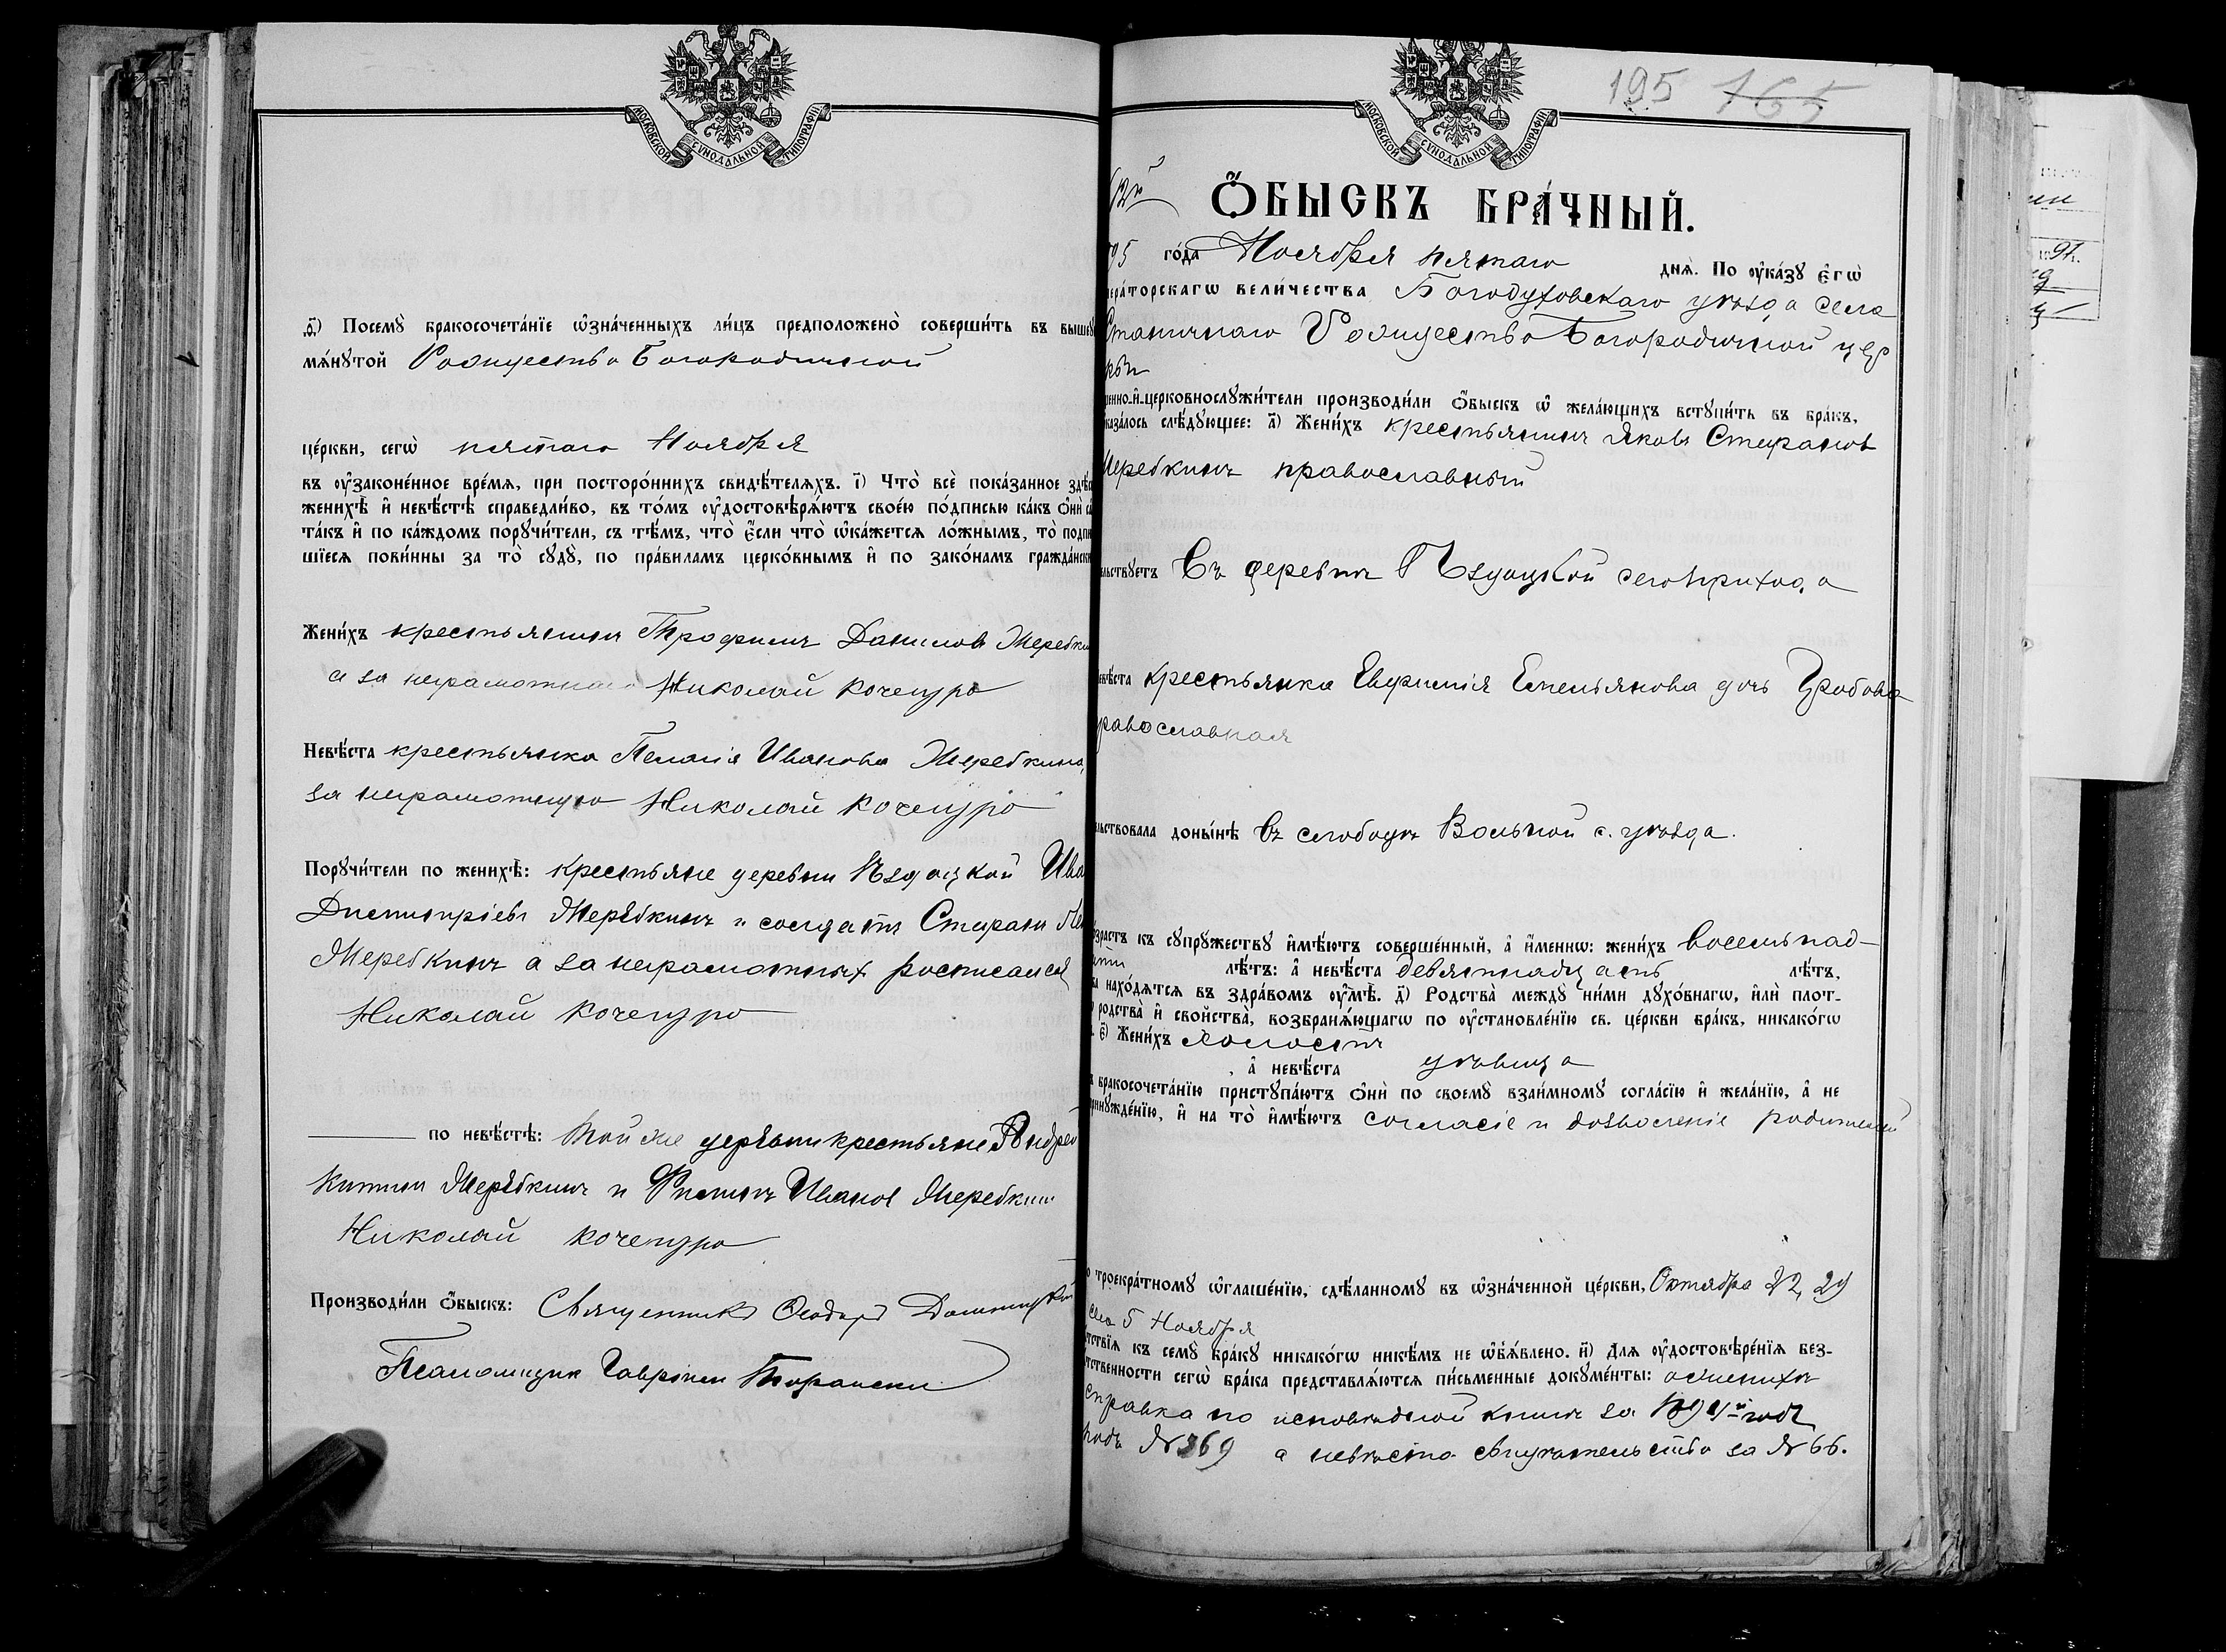 МОСКОВСКОЙ СѴНОДАЛЬНОЙ ТИПОГРАФІИ
ѳ҃) Посемꙋ̀ бракосочета́нїе ѡ҆зна́ченныхъ ли́цъ предположено̀ соверши́ть въ выше
мѧ́нꙋтой Рождество Богородичной
це́ркви, сегѡ̀ пятаго Ноября
въ ᲂу҆законе́нное вре́мѧ, при посторо́ннихъ свидѣ́телѧхъ. і҃) Что̀ всѐ пока́занное здѣ
женихѣ̀ и҆ невѣ́стѣ справедли́во, въ то́мъ ᲂу҆достовѣрѧ́ютъ свое́ю по́дписью ка́къ ѻ҆нѝ са
та́къ и҆ по ка́ждомъ порꙋчи́тели, съ тѣ́мъ, что̀ є҆́сли что̀ ѡ҆ка́жетсѧ ло́жнымъ, то̀ подпи
шїесѧ пови́нны за то̀ сꙋдꙋ̀, по пра́виламъ церко́внымъ и҆ по зако́намъ гражда́нски
Жени́хъ крестьянинъ Трофимъ Даниловъ Жеребки
а за неграмотнаго Николай Кочепуро
Невѣ́ста крестьянка Пелагія Иванова Жеребкина,
за неграмотную Николай Кочепуро
Порꙋчи́тели по женихѣ̀: крестьяне деревни Ива
Дмитріевъ Жеребкинъ и солдатъ Стефанъ
Жеребкинъ а за неграмотныхъ росписался
Николай Кочепуро
по невѣ́стѣ: той же деревни крестьяне Андрей
Жеребкинъ и Иванов Жеребкин
Николай Кочепуро
Производи́ли ѻ҆́быскъ: Священникъ Ѳеодоръ
Псаломщикъ Гавріилъ
МОСКОВСКОЙ СѴНОДАЛЬНОЙ ТИПОГРАФІИ
195 165
Ѻ҆́БЫСКЪ БРА́ЧНЫЙ.
95 го́да Ноября пятаго днѧ̀. По ᲂу҆ка́зꙋ є҆гѡ̀
ера́торскагѡ вели́чества Богодуховскаго уѣзда села
Станичнаго Рождество Богородичной цер
кви
енно-и҆-церковнослꙋжи́тели производи́ли ѻ҆́быскъ ѡ҆ жела́ющихъ встꙋпи́ть въ бра́къ,
каза́лось слѣ́дꙋющее: а҃) Жени́хъ крестьянинъ Яковъ Стефановъ
Жеребкинъ православный
льствꙋетъ Въ деревнѣ сего прихода
вѣ́ста крестьянка Евфимія Емельянова дочь
православная
льствовала доны́нѣ въ слободѣ Вольной с. уѣзда.
зрастъ къ сꙋпрꙋ́жествꙋ и҆мѣ́ютъ соверше́нный, а҆ и҆́меннѡ: жени́хъ восемнад-
цати лѣ́тъ: а҆ невѣ́ста девятнадцать лѣ́тъ,
а нахо́дѧтсѧ въ здра́вомъ ᲂу҆мѣ̀. д҃) Родства̀ междꙋ̀ ни́ми дꙋхо́внагѡ, и҆лѝ плот-
родства̀ и҆ сво́йства, возбранѧ́ющагѡ по ᲂу҆становле́нїю св. це́ркви бра́къ, никако́гѡ
є҃) Жени́хъ холостъ
, а҆ невѣ́ста дѣвица
бракосочета́нїю пристꙋпа́ютъ ѻ҆нѝ по своемꙋ̀ взаи́мномꙋ согла́сїю и҆ жела́нїю, а҆ не
инꙋжде́нїю, и҆ на то̀ и҆мѣ́ютъ согласіе и дозволеніе родителей
о троекра́тномꙋ ѡ҆глаше́нїю, сдѣ́ланномꙋ въ ѡ҆зна́ченной це́ркви, Октября 22, 29
5 Ноября
тствїѧ къ семꙋ̀ бра́кꙋ никако́гѡ никѣ́мъ не ѡ҆б̾ѧ́влено. и҃) Длѧ ᲂу҆достовѣре́нїѧ без-
тственности сегѡ̀ бра́ка представлѧ́ютсѧ пи́сьменные докꙋме́нты: о женихѣ
справка по исповѣдной книгѣ за годъ
подъ № 369 а невѣста свидѣтельство за № 66.